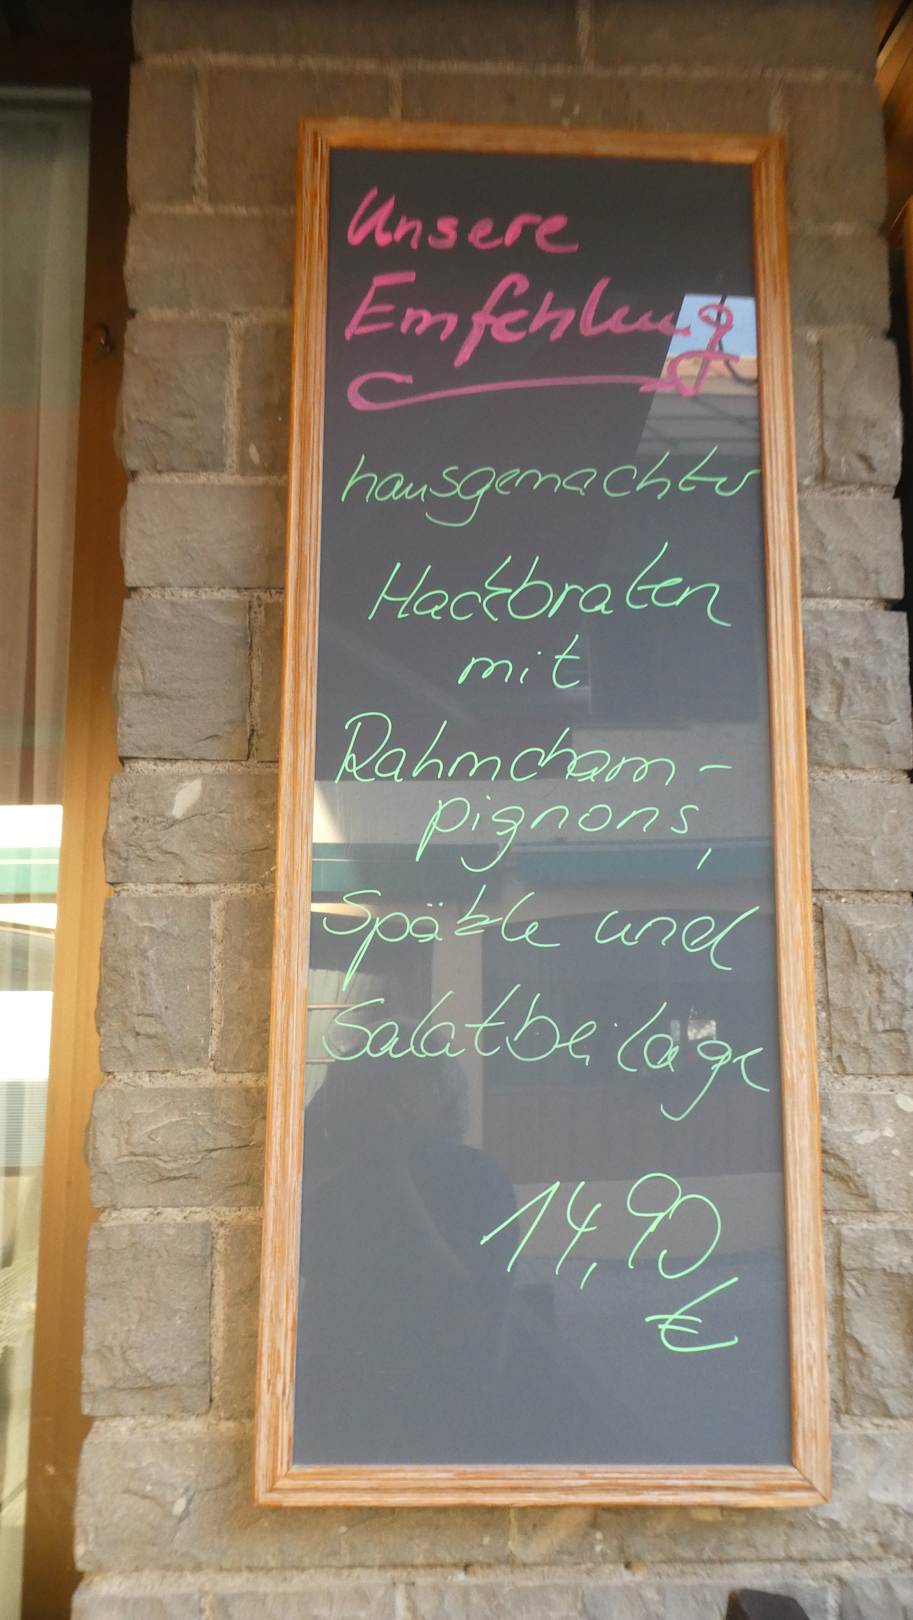 Unsere
Emfehlung
hausgemachter
Hackbraten
mit
Rahmcham-
pignons,
Spätzle und
Salatbeilage
14,90
€